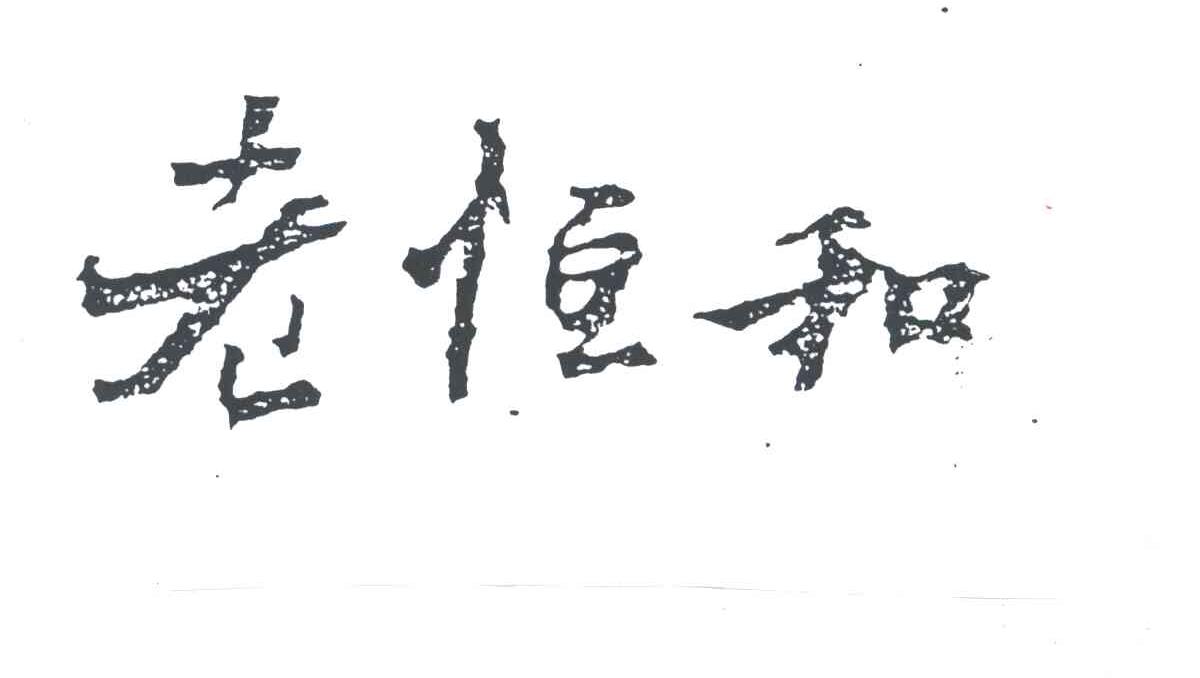 老恒和